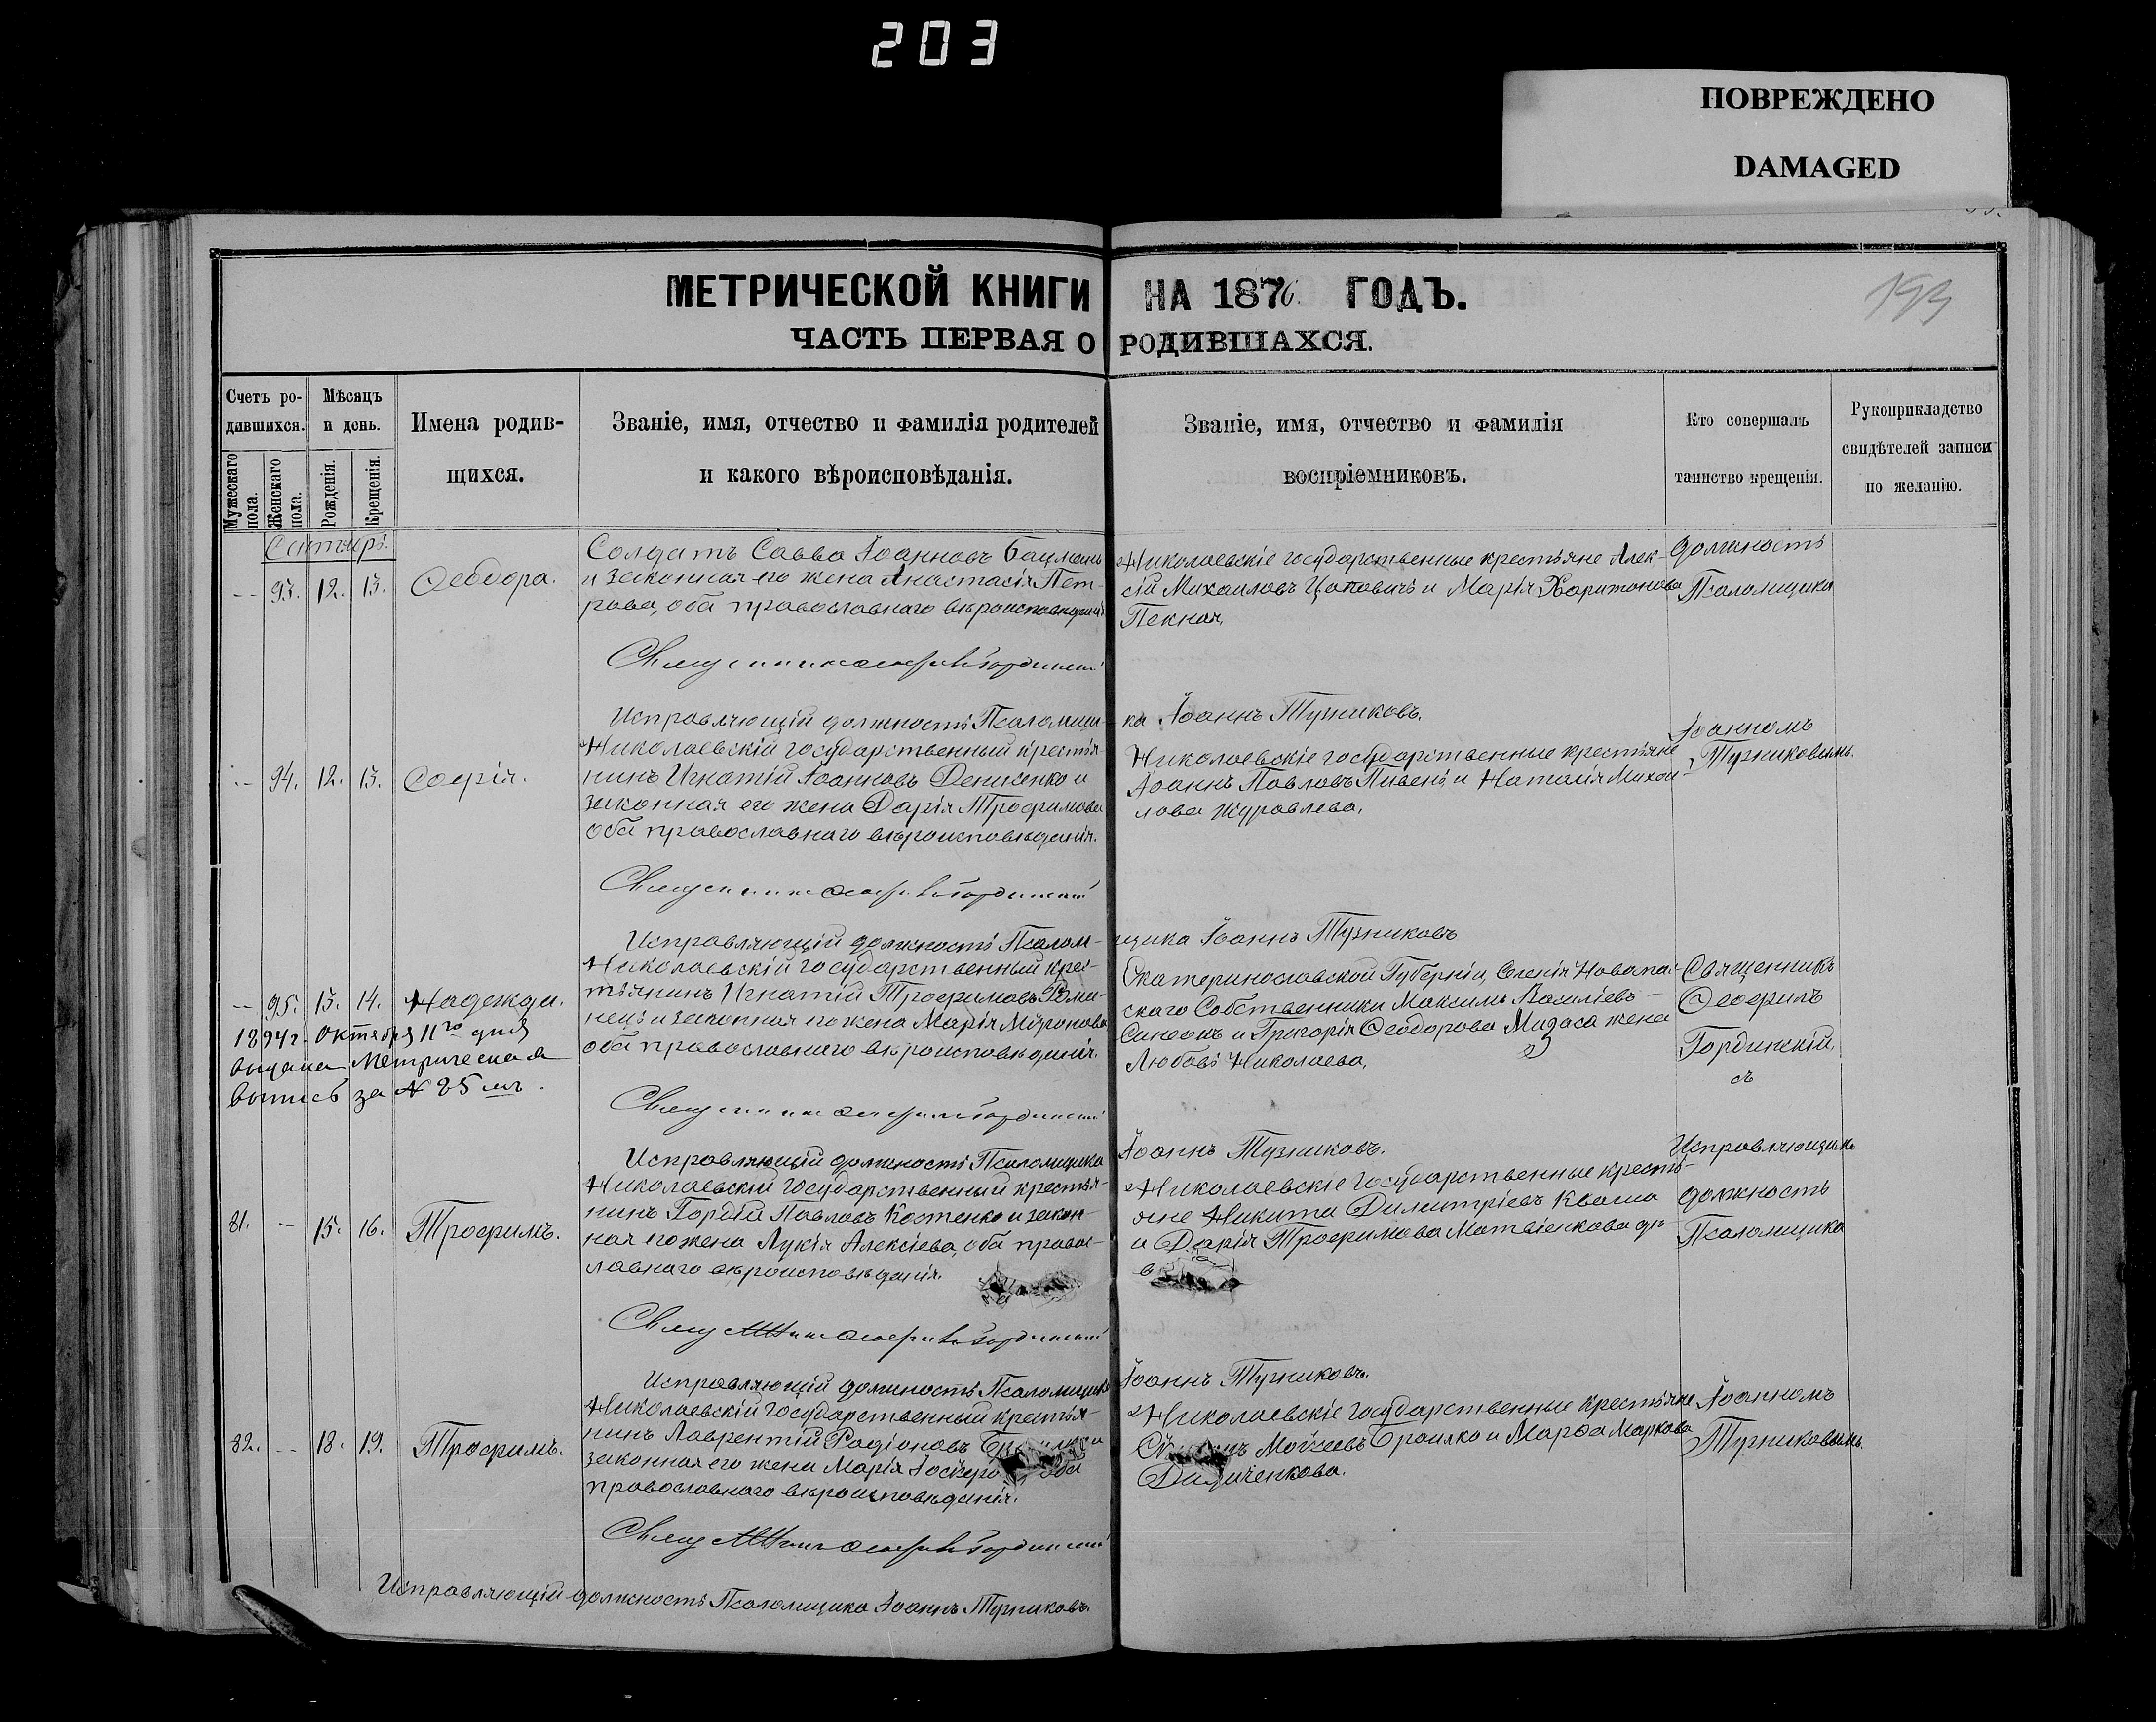 203
ПОВРЕЖДЕНО
DAMAGED
МЕТРИЧЕСКОЙ КНИГИ НА 1876. ГОДЪ.
ЧАСТЬ ПЕРВАЯ О РОДИВШАХСЯ.
193
Счетъ ро-
дившихся.
Мужескаго пола.
Женскаго пола.
Мѣсяцъ
и день.
Рожденія.
Крещенія.
Имена родив-
шихся.
Званіе, имя, отчество и фамилія родителей
и какого вѣроисповѣданія.
Званіе, имя, отчество и фамилія
воспріемниковъ.
Кто совершалъ
таинство крещенія.
Рукоприкладство
свидѣтелей записи
по желанію.
— 93. 12. 13. Ѳеодора.
Солдатъ Савва Іоанновъ Бацманъ
и законная его жена Анастасія Пет-
рова, оба православнаго вѣроисповѣданія
Николаевскіе государственные крестьяне Алек-
сій Михаиловъ Цаповичъ и Марія Харитонова
Пекная.
Должность
Псаломщика
Исправляющій должность Псаломщи-
ка Іоаннъ Тузниковъ.
— 94. 12. 13. Софія.
Николаевскій государственный крестья-
нинъ Игнатій Іоанновъ Денисенко и
законная его жена Дарія Трофимова
оба православнаго вѣроисповѣданія.
Николаевскіе государственные крестьяне
Іоаннъ Павловъ Пивень и Наталія Михаи-
лова Журавлева.
Іоанномъ
Тузниковымъ.
Исправляющій должность Псалом-
щика Іоаннъ Тузниковъ
— 95. 13. 14. Надежда.
1894г. Октября 11го дня
выдана Метрическая
выпись за № 25 мъ.
Николаевскій государственный крес-
тьянинъ Игнатій Трофимовъ Рома-
нецъ и законная его жена Марія Миронова
оба православнаго вѣроисповѣданія.
Екатеринославской Губерніи, Селенія
скаго Собственники Максимъ Василіевъ
и Григорія Ѳеодорова Мидаса жена
Любовь Николаева.
Священникъ
Ѳеофилъ
Гординскій
съ
Исправляющій должность Псаломщика
Іоаннъ Тузниковъ.
81. — 15. 16. Трофимъ.
Николаевскій государственный крестья-
нинъ Гордій Павловъ Костенко и закон-
ная его жена Лукія Алексіева, оба правос-
лавнаго вѣроисповѣданія.
Николаевскіе Государственные кресть-
яне Никита Димитріевъ Кваша
и Дарія Трофимова Матвіенкова дѣ-
Исправляющимъ
должность
Псаломщика
Исправляющій должность Псаломщика
Іоаннъ Тузниковъ.
82. — 18. 19. Трофимъ.
Николаевскій государственный крестья-
нинъ Лаврентій Радіоновъ
законная его жена Марія оба
православнаго вѣроисповѣданія.
Николаевскіе государственные крестьяне
Моѵсеевъ Браилко и Марѳа Маркова
Іоанномъ
Тузниковымъ.
Исправляющій должность Псаломщика Іоаннъ Тузниковъ.